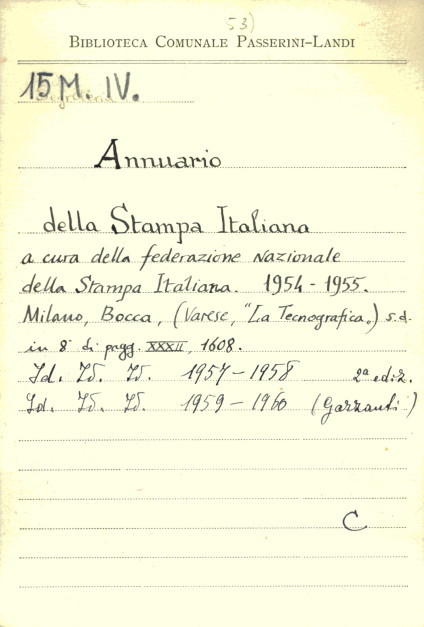 53)
BIBLIOTECA COMUNALE PASSERINI-LANDI
15 M. IV.
Annuario
della Stampa Italiana
a cura della federazione Nazionale
della Stampa Italiana. 1954-1955.
Milano, Bocca, (Varese, "La Tecnografica„) s.d.
in 8° di pagg. XXXII, 1608.
Id. Id. Id. 1957-1958 2ª ediz.
Id. Id. Id. 1959-1960 (Garzanti)
C